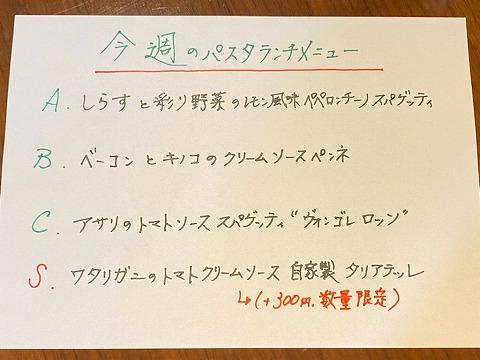 今週のパスタランチメニュー
A. しらすと彩り野菜のレモン風味ペペロンチーノスパゲッティ
B. ベーコンとキノコのクリームソースペンネ
C. アサリのトマトソース スパゲッティ"ヴォンゴレ ロッソ"
S. ワタリガニのトマトクリームソース 自家製 タリアテッレ
↳(+300円、数量限定)